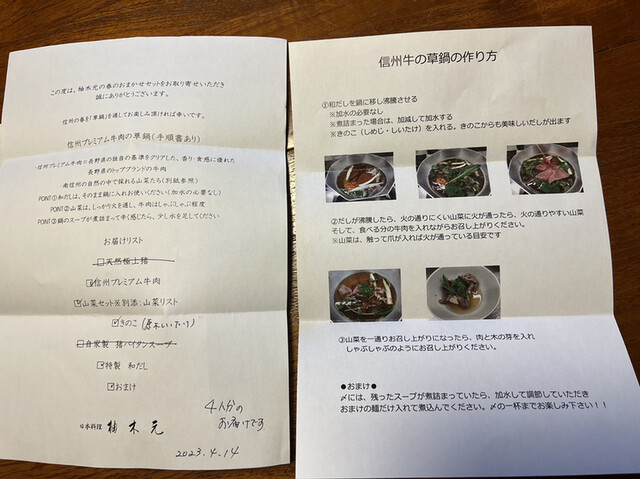 この度は、柚木元の春のおまかせセットをお取り寄せいただき
誠にありがとうございます。
信州の春を「草鍋」を通してお楽しみ頂ければ幸いです。
信州プレミアム牛肉の草鍋(手順書あり)
・信州プレミアム牛肉=長野県の独自の基準をクリアした、香り・食感に優れた
長野県のトップブランドの牛肉
・南信州の自然の中で採れる山菜たち(別紙参照)
POINT①和だしは、そのまま鍋にお使いください(加水の必要なし)
POINT②山菜は、しっかり火を通し、牛肉はしゃぶしゃぶ程度
POINT③鍋のスープが煮詰まって辛く感じたら、少し水を足してください
お届けリスト
□天然極上猪
☑信州プレミアム牛肉
☑山菜セット※別添:山菜リスト
☑きのこ(原木しいたけ)
□自家製 猪パイタンスープ
☑特製 和だし
☑おまけ
4人分の
お届けです
日本料理 柚木元
2023.4.14
信州牛の草鍋の作り方
①和だしを鍋に移し沸騰させる
※加水の必要なし
※煮詰まった場合は、加減して加水する
※きのこ(しめじ・しいたけ)を入れる。きのこからも美味しいだしが出ます
②だしが沸騰したら、火の通りにくい山菜に火が通ったら、火の通りやすい山菜
そして、食べる分の牛肉を入れながらお召し上がりください。
※山菜は、触って爪が入れば火が通っている目安です
③山菜を一通りお召し上がりになったら、肉と木の芽を入れ
しゃぶしゃぶのようにお召し上がりください。
●おまけ●
〆には、残ったスープが煮詰まっていたら、加水して調節していただき
おまけの麺だけ入れて煮込んでください。〆の一杯までお楽しみ下さい!!